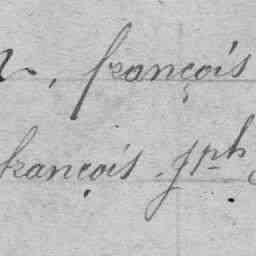 , françois
françois jph